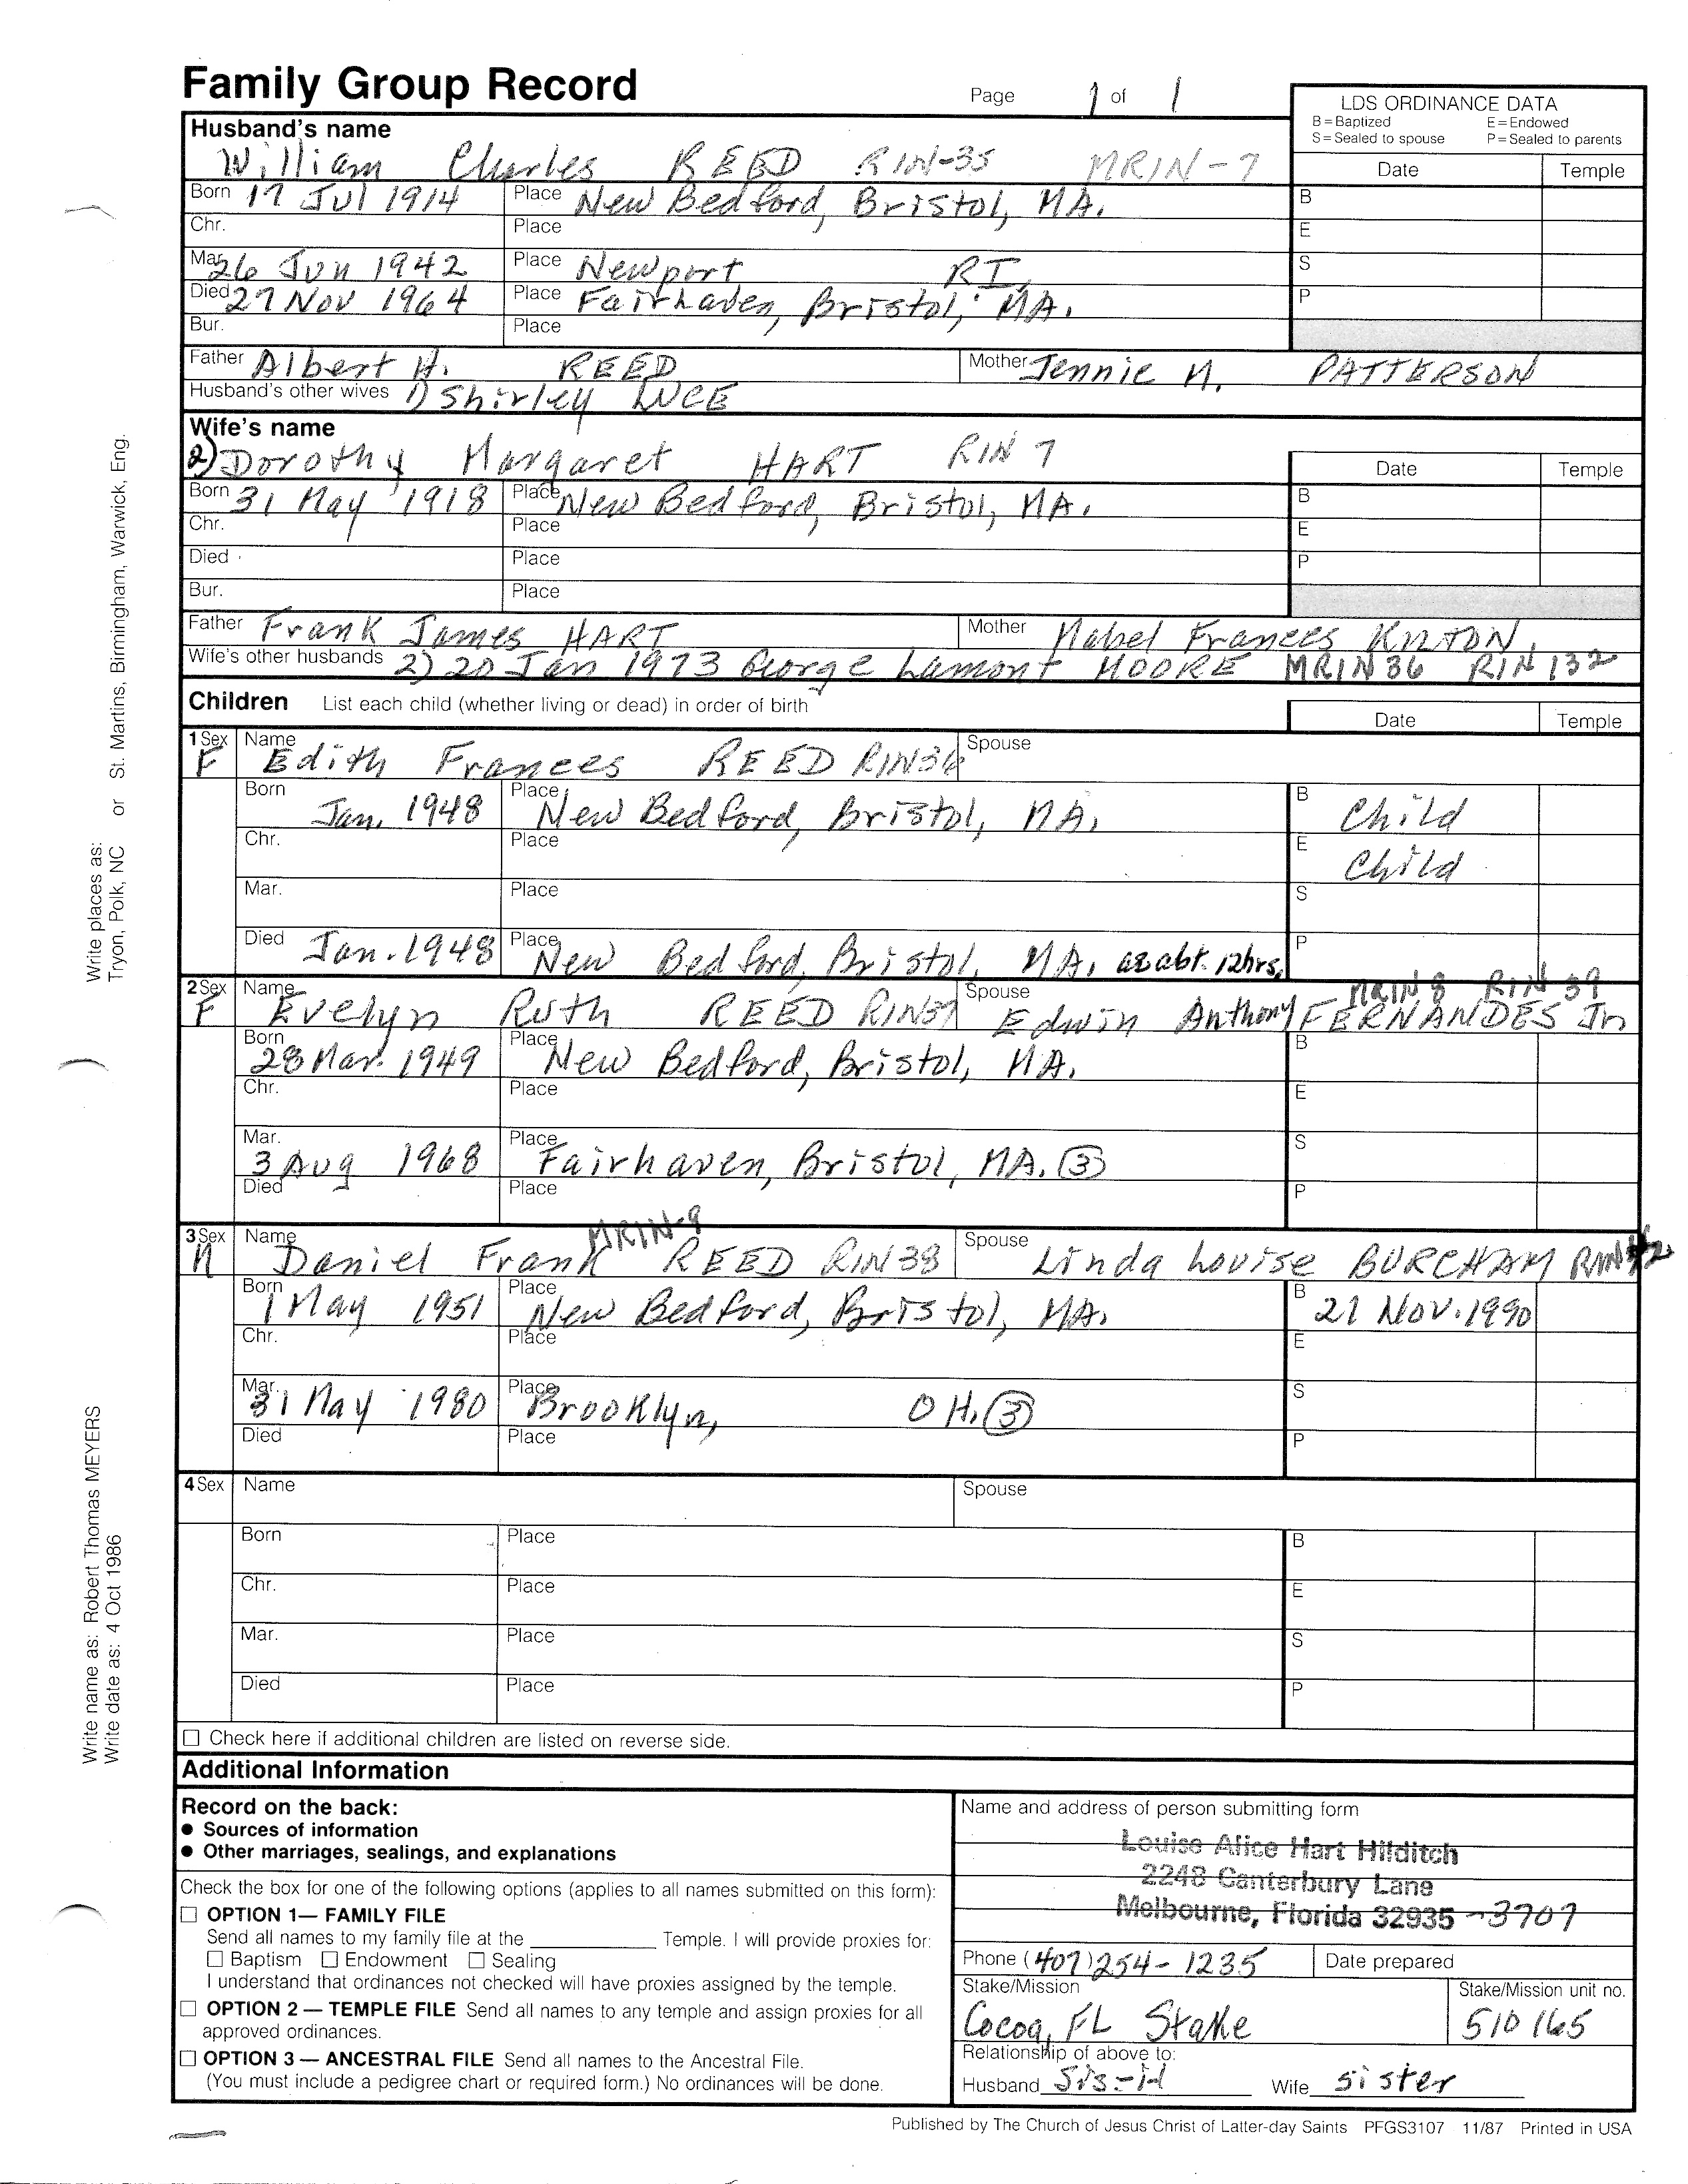 Family Group Record
Page 1 of 1
LDS ORDINANCE DATA
B=Baptized E=Endowed
S=Sealed to spouse P=Sealed to parents
Husband's name
William Charles REED RIN-35 MRIN-7
Date Temple
Born 17 Jul 1914 Place New Bedford, Bristol, MA. B
Chr. Place E
Mar. 26 Jun 1942 Place Newport RI. S
Died 27 Nov 1964 Place Fairhaven, Bristol, MA. P
Bur. Place
Father Albert H. REED Mother Jennie M. PATTERSON
Husband's other wives 1) Shirley LUCE
Wife's name
2) Dorothy Margaret HART RIN 7
Date Temple
Born 31 May 1918 Place New Bedford, Bristol, MA. B
Chr. Place E
Died Place P
Bur. Place
Father Frank James HART Mother Mabel Frances KNTON
Wife's other husbands 2) 20 Jan 1973 George Lamont MOORE MRIN 36 RIN 132
Children List each child (whether living or dead) in order of birth
Date Temple
1 Sex F Name Edith Frances REED RIN36 Spouse
Born Jan. 1948 Place New Bedford, Bristol, MA. B Child
Chr. Place E Child
Mar. Place S
Died Jan. 1948 Place New Bedford, Bristol, MA. abt. 12hrs. P
2 Sex F Name Evelyn Ruth REED RIN37 Spouse Edwin Anthony FERNANDES Jr MRIN 8 RIN 39
Born 28 Mar. 1949 Place New Bedford, Bristol, MA. B
Chr. Place E
Mar. 3 Aug 1968 Place Fairhaven, Bristol, MA. (3) S
Died Place P
3 Sex M Name Daniel Frank MRIN-9 REED RIN38 Spouse Linda Louise BURCHAM
Born 1 May 1951 Place New Bedford, Bristol, MA. B 21 Nov. 1990
Chr. Place E
Mar. 31 May 1980 Place Brooklyn, OH. (3) S
Died Place P
4 Sex Name Spouse
Born Place B
Chr. Place E
Mar. Place S
Died Place P
Check here if additional children are listed on reverse side.
Additional Information
Record on the back:
● Sources of information
● Other marriages, sealings, and explanations
Check the box for one of the following options (applies to all names submitted on this form):
OPTION 1— FAMILY FILE
Send all names to my family file at the ____ Temple. I will provide proxies for:
Baptism Endowment Sealing
I understand that ordinances not checked will have proxies assigned by the temple.
OPTION 2 — TEMPLE FILE Send all names to any temple and assign proxies for all
approved ordinances.
OPTION 3 — ANCESTRAL FILE Send all names to the Ancestral File.
(You must include a pedigree chart or required form.) No ordinances will be done.
Name and address of person submitting form
Louise Alice Hart Hilditch
2248 Canterbury Lane
Melbourne, Florida 32935 -3707
Phone (407) 254-1235 Date prepared
Stake/Mission Stake/Mission unit no.
Cocoa, FL Stake 510165
Relationship of above to:
Husband Sis-il Wife sister
Published by The Church of Jesus Christ of Latter-day Saints PFGS3107 11/87 Printed in USA
Write places as: Tryon, Polk, NC or St. Martins, Birmingham, Warwick, Eng.
Write name as: Robert Thomas MEYERS
Write date as: 4 Oct 1986